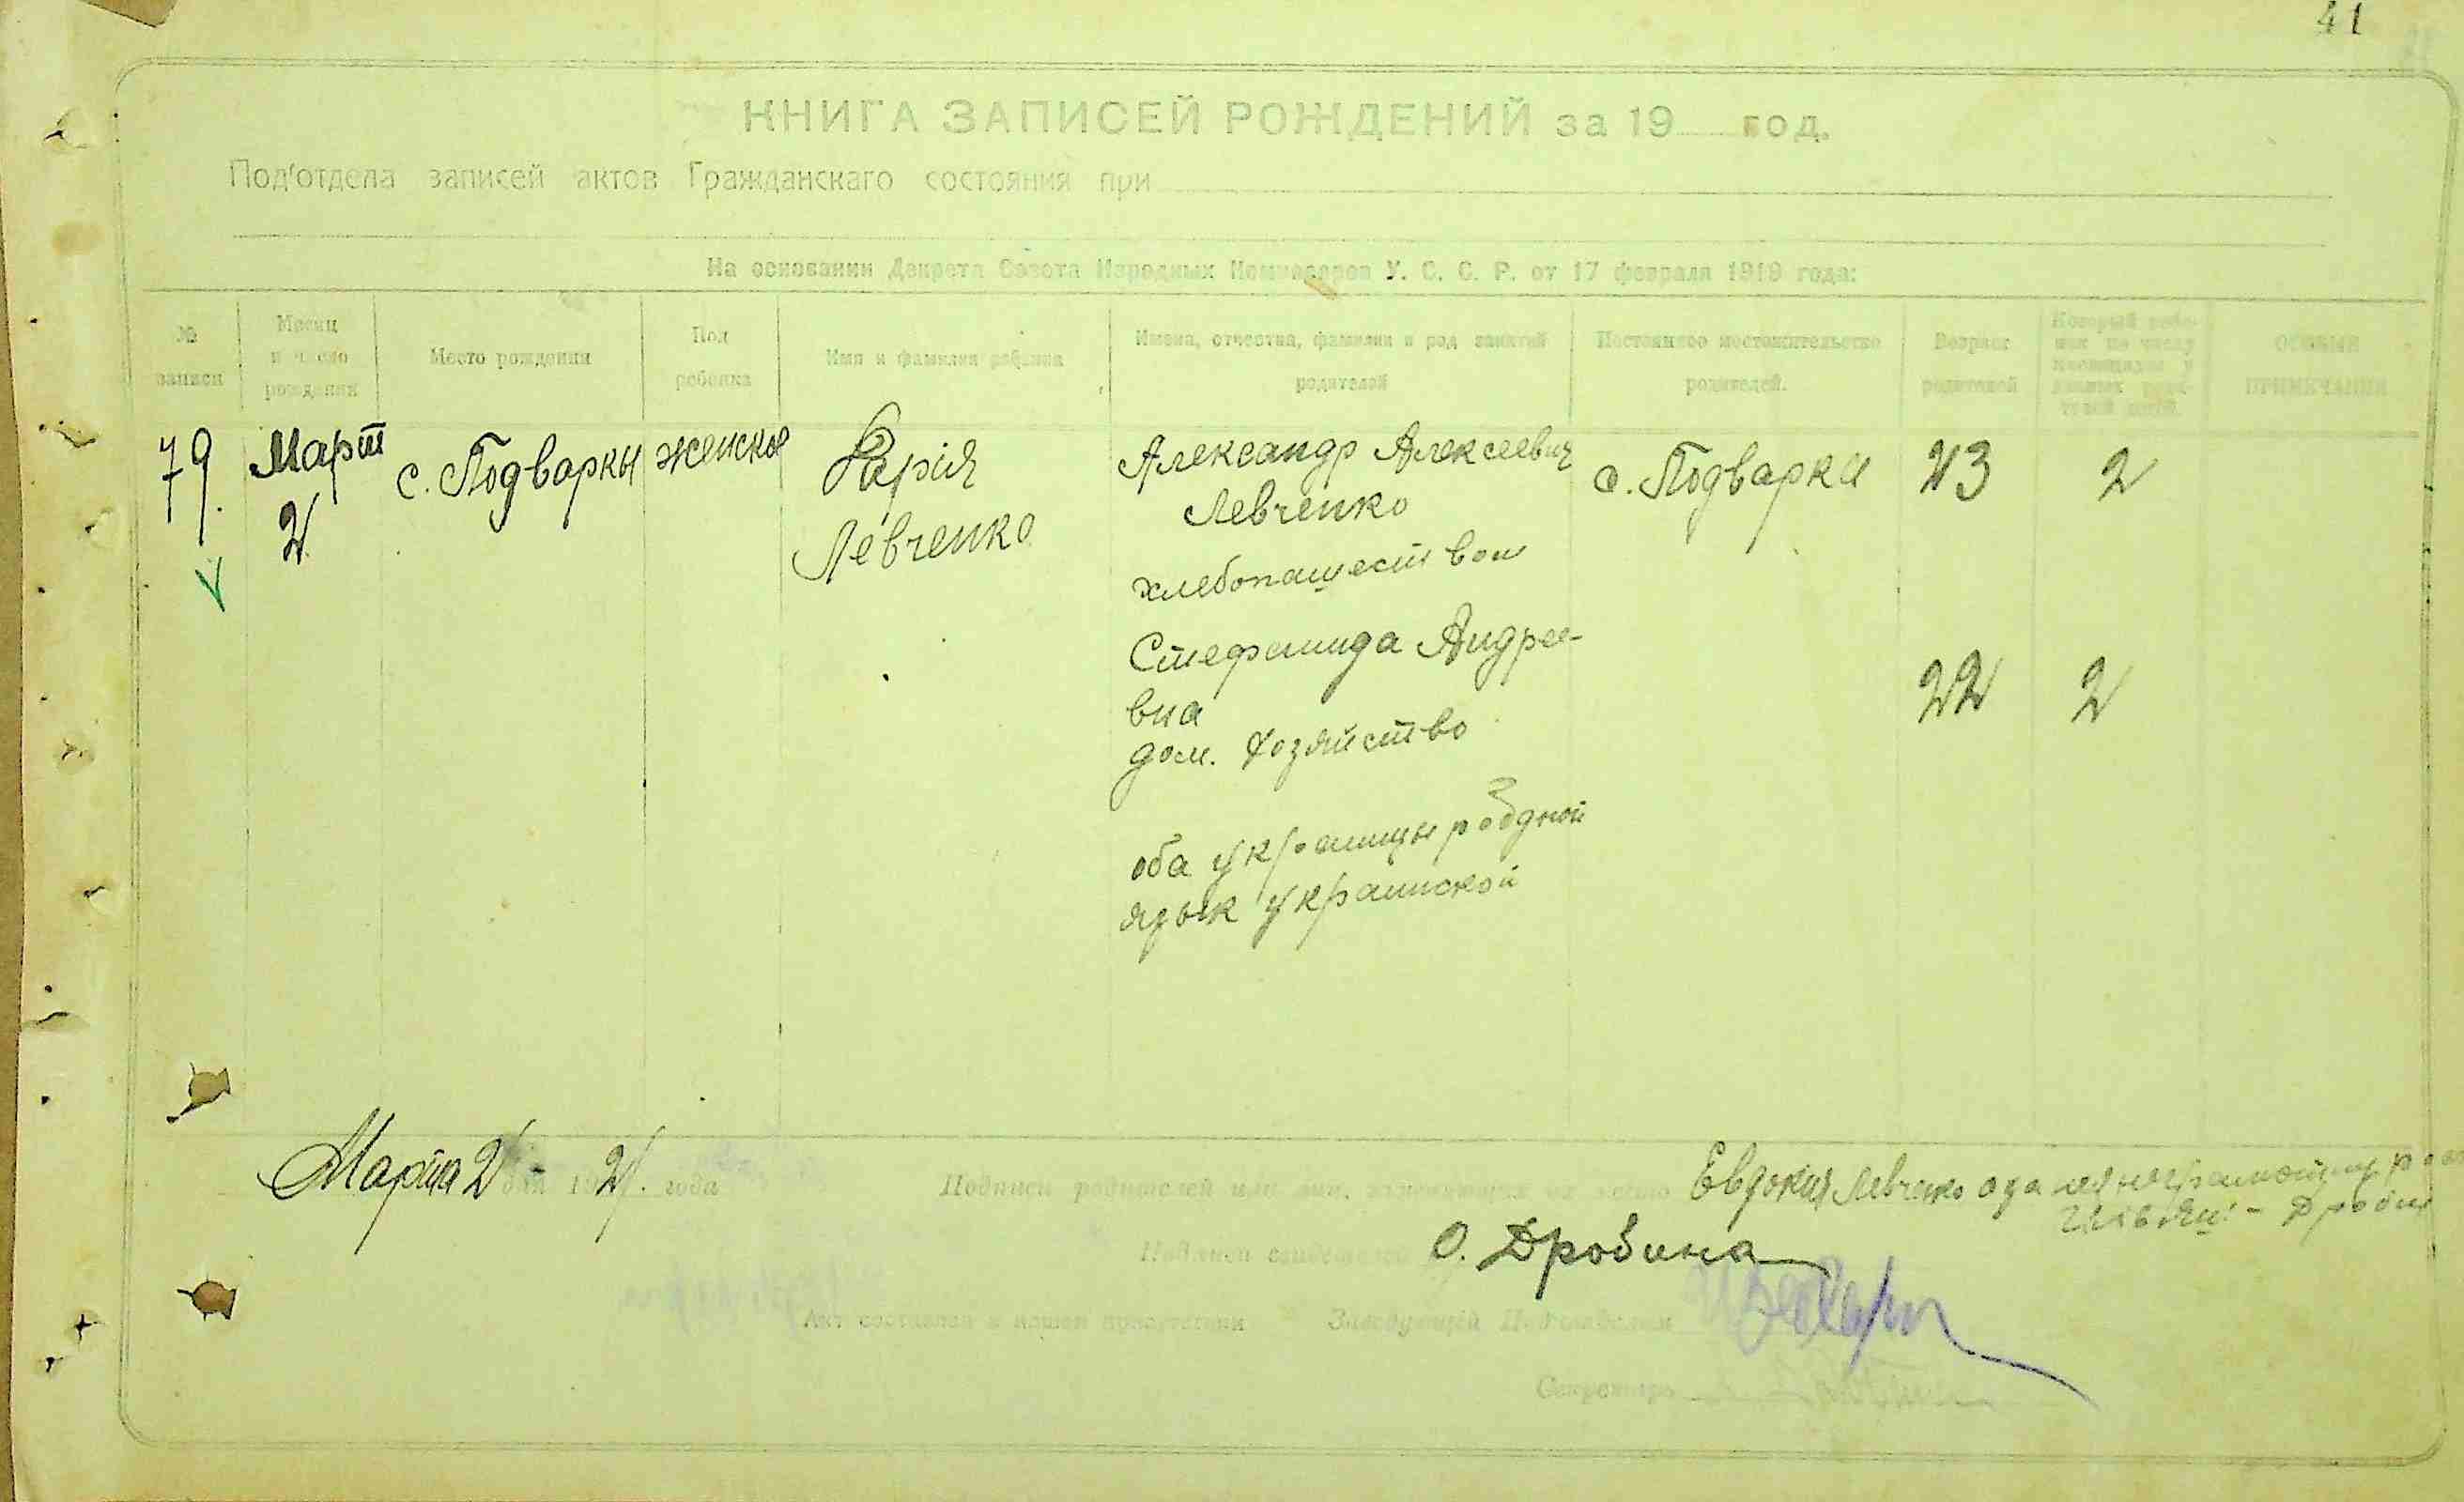 41
КНИГА ЗАПИСЕЙ РОЖДЕНИЙ за 19 год.
Под'отдела записей актов Гражданскаго состояния при
На основании Декрета Совета Народных Комиссаров У. С. С. Р. от 17 февраля 1919 года:
№ записи
Месяц и число рождения
Место рождения
Пол ребенка
Имя и фамилия ребенка
Имена, отчества, фамилии и род занятий родителей
Постоянное местожительство родителей.
Возраст родителей
ОСОБЫЕ ПРИМЕЧАНИЯ
79.
Март
2
с. Подварки
женской
Левченко
Александр Алексеевич
Левченко
хлебопашеством
с. Подварки
23
2
Стефанида Андрее-
вна
дом. хозяйство
22
2
оба украинцы родной
язык украинской
Марта 2 дня 192 года
Подписи родителей или лиц, заменяющих их место
Евдокия Левченко а за
Подписи свидетелей
О. Дробина
Акт составлен в нашем присутствии
Заведующий Подотделом
Секретарь